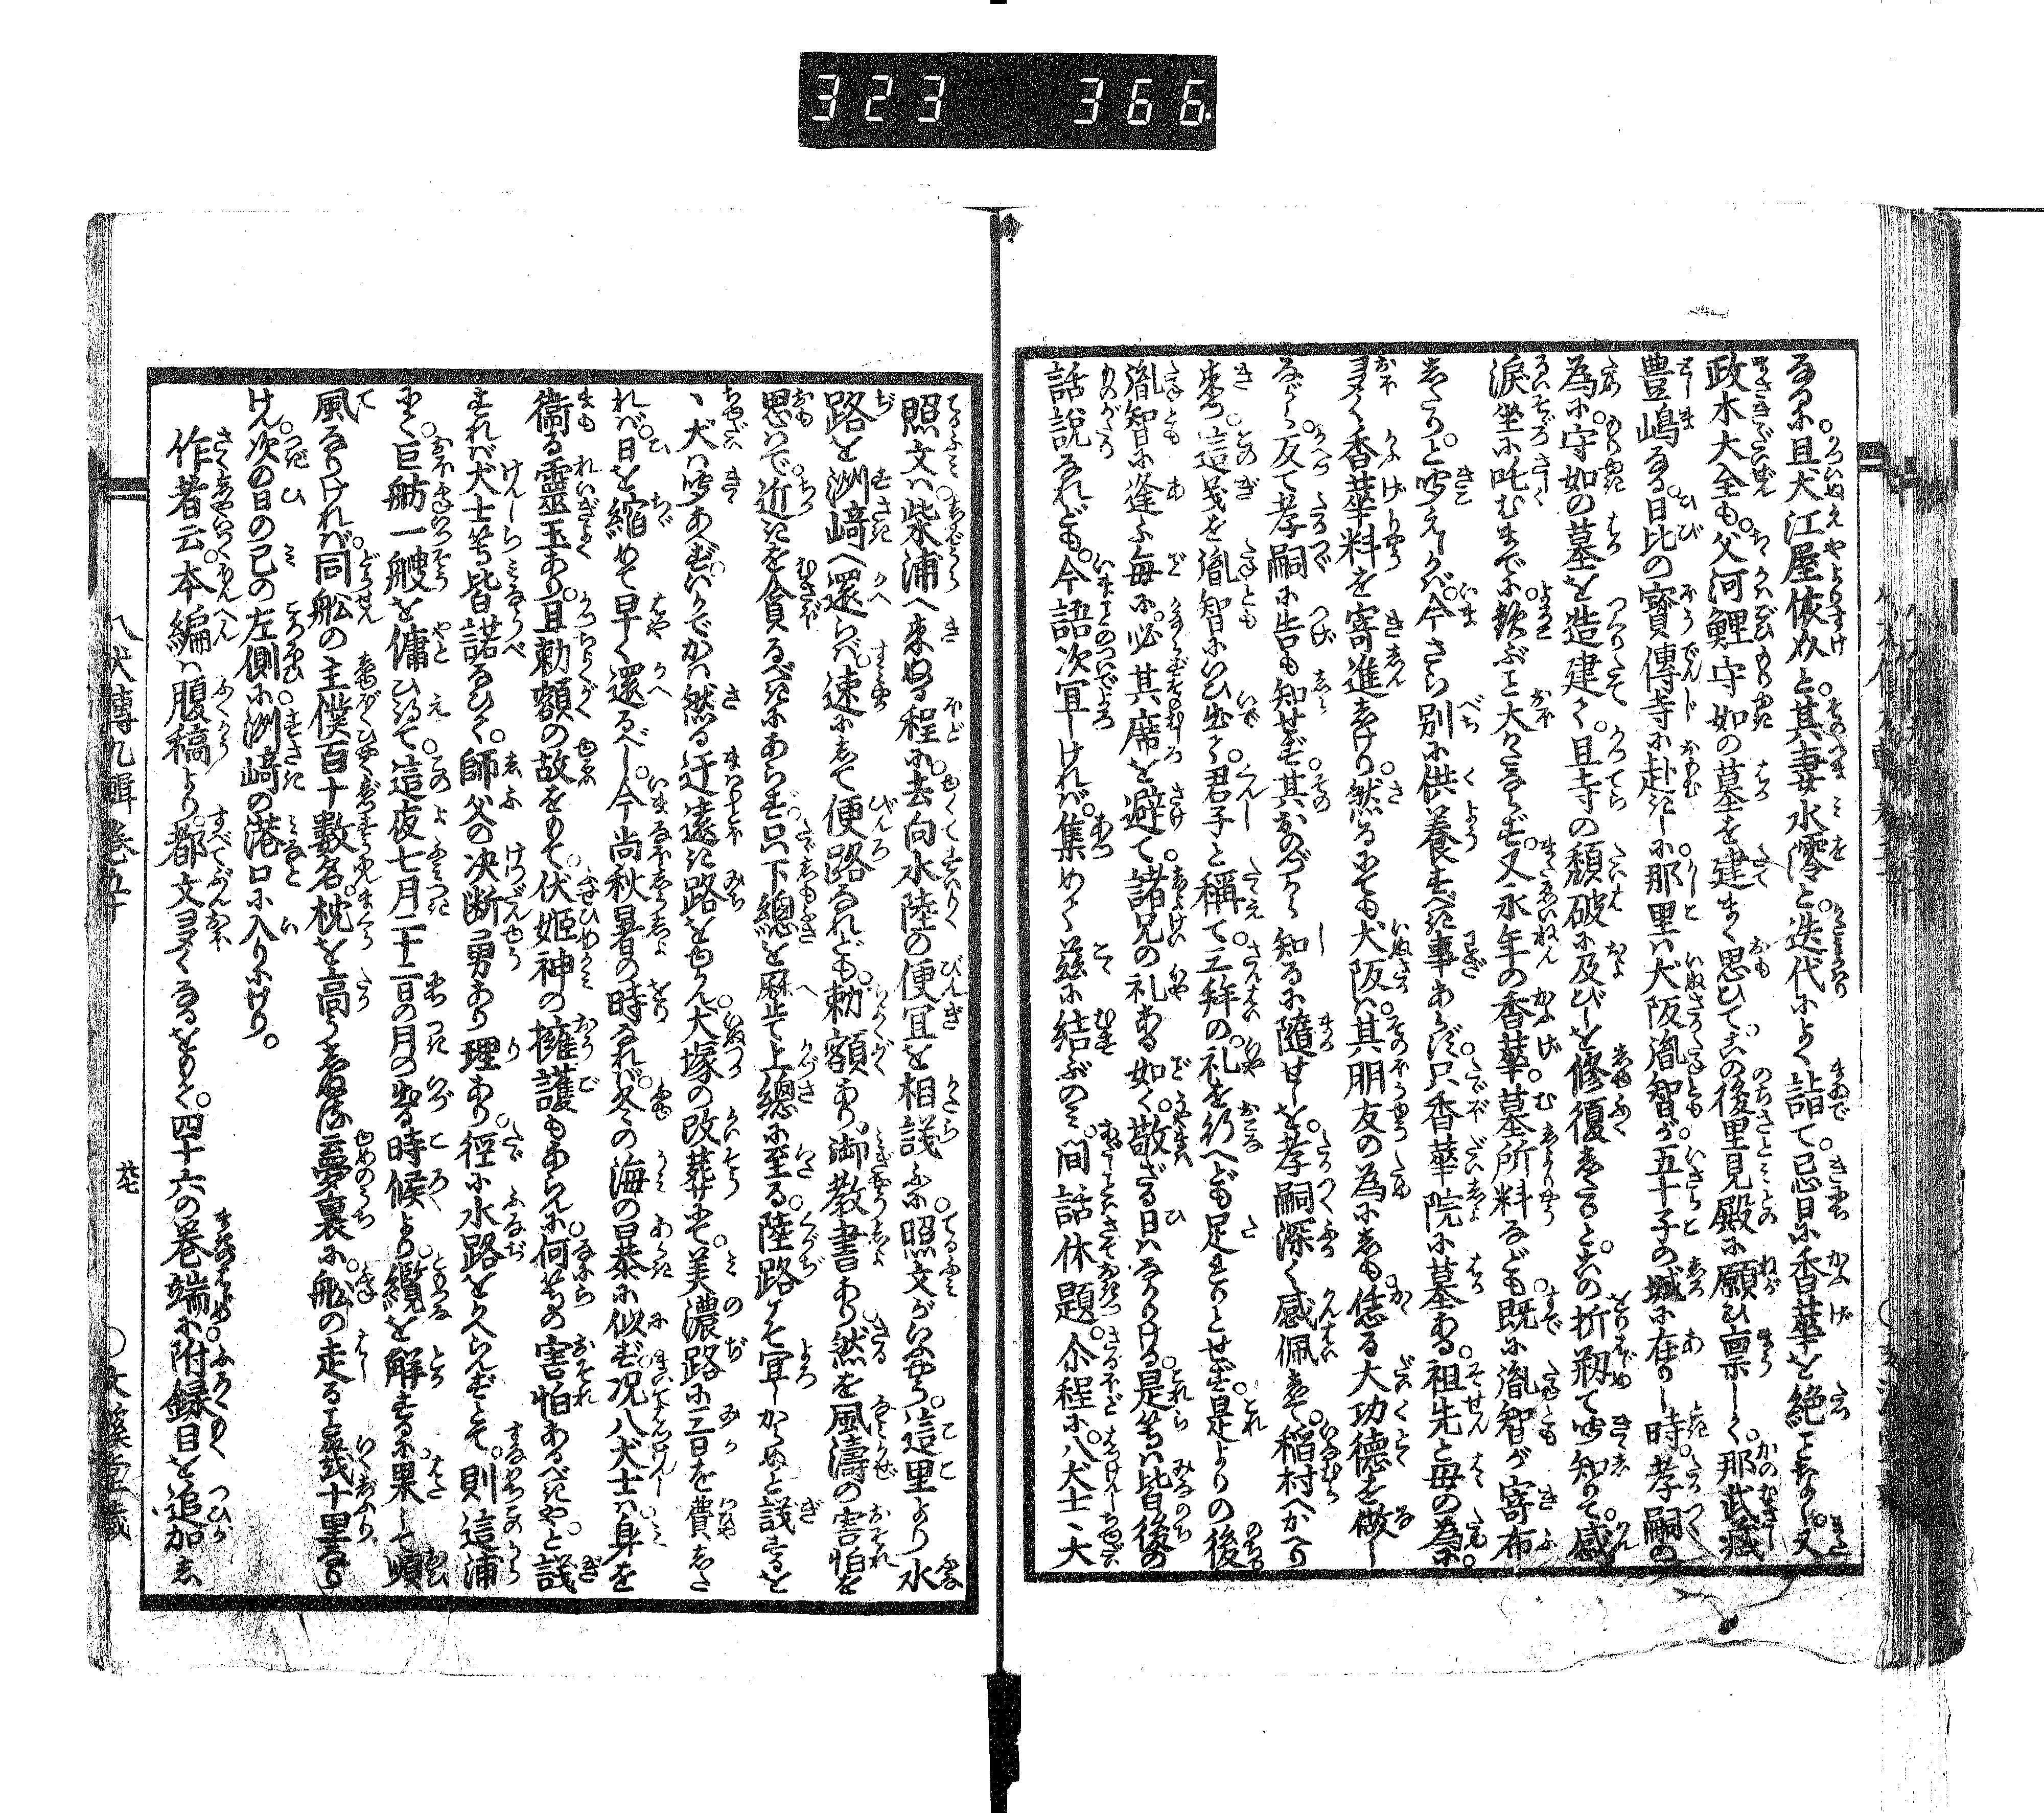 323 366
るに。且犬江屋依介と。其妻水澪と。迭代によく詣て。忌日に香華を絶ことなし。又
政木大全も。父河鯉守如の墓を建まく思ひて。その後里見殿に願ひ稟しく。那武藏
豊嶋なる。日比の寳傳寺に赴きしに。那里は犬阪胤智が。五十子の城に在りし時。孝嗣の
為に。守如の墓を造建て。且寺の頽破に及びしを修復しきと。その折初て听知りて。感
涙坐に吐むまでに。歡ぶこと大かたならず。又永年の香華。墓所料なども。既に胤智が寄布
したり。と听えしかば。今さら別に供養すべき事あらず。只香華院に墓ある。祖先と母の為に。
多く香華料を寄進しけり。然るにても犬阪は。其朋友の為にしも。恁る大功德を做し
ながら。反て孝嗣に告も知せず。其おのづから知るに隨せしを。孝嗣深く感佩して。稲村へかへり
來つ。這義を胤智にいひ出て。君子と稱て三拜の。礼を行へども足れりとせず。是よりの後
胤智に逢ふ毎に。必其席を避て。諸兄の礼ある如く。敬ざる日はなかりける。是等は皆後の
話説なれども。今語次宜しければ。集めて茲に結ぶのみ。間話休題。尒程に。八犬士丶大
照文は。柴浦へ來ぬる程に。去向水陸の便宜を相譚ふに。照文がいふやう。這里より水
路を洲﨑へ還らば。速にして便路なれども。勅額あり。御教書あり。然るを風濤の害怕を
思はで。近きを貪るべきにあらず。只下總を歴て上總に至る。陸路こそ宜しからめと議するを
丶犬は听あへず。いかでかは然る迂遠き路をゆかん。大塚の改葬にて。美濃路に三日を費した
れば。日を縮めて早く還るべし。今尚秋暑の時なれば。冬の海の暴に似ず。况八犬士は身を
衞る靈玉あり。且勅額の故をもて。伏姬神の擁護もあらんに。何等の害怕あるべきや。と議
すれば犬士等皆諾なひて。師父の决断勇あり理あり。徑に水路をかへらんずとて。則這浦
にて。巨舫一艘を傭ひ得て。這夜七月二十二日の月の出る時候より。纜を解するに。果して順
風なりければ。同舩の主僕百十數名。枕を高うしぬる夢裏に。舩の走ること幾十里なり
けん。次の日の巳の左側に。洲﨑の港口に入りにけり。
作者云。本編は腹稿より。都文多くなるをもて。四十六の卷端に。附録目を追加し
八犬傳九輯卷五十
文溪堂藏